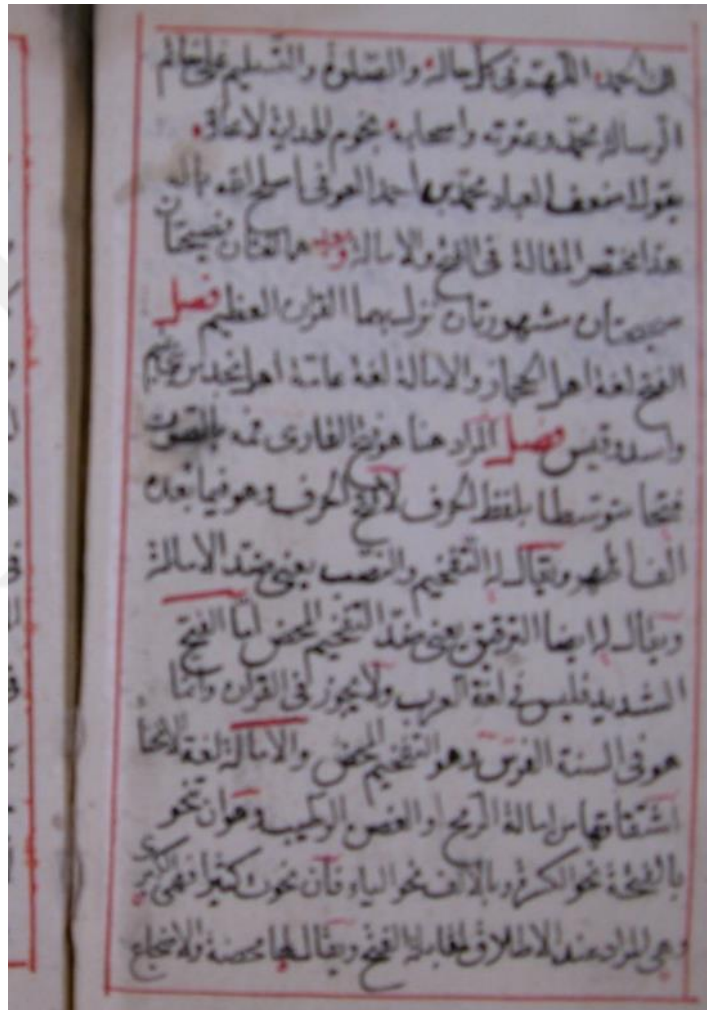 الحمد لله في كل حاله والصلوة والتسليم على خاتم
الرسالة محمد وعترته واصحابه نجوم الهداية لا محالة
يقول اضعف العباد محمد بن احمد العوفي اصلح الله باله
هذا مختصر المقالة في الفتح والامالة وبعد هما لغتان فصيحتان
صحيحتان مشهورتان نزل بهما القران العظيم فصل
الفتح لغة اهل الحجاز والامالة لغة عامة اهل نجد من تميم
واسد وقيس فصل المراد هنا هو فتح القارى فمه بالصوت
فتحا متوسطا بلفظ الحرف لا فتح الحرف وهو فيما بعده
الف اظهر ويقال له التفخيم والنصب يعنى ضد الامالة
ويقال له ايضا الترقيق يعنى ضد التفخيم المحض اما الفتح
الشديد فليس في لغة العرب ولا يجوز في القران وانما
هو في السنة الفرس وهو التفخيم المحض والامالة لغة الانحنا
اشتقاقها من امالة الرمح او الغصن الرطيب وهو ان تنحو
بالفتحة نحو الكسرة وبالالف نحو الياء فان نحوت كثيرا فهى الكبرى
وهى المراد عند الاطلاق لمقابلة الفتح ويقال لها محضة والاضجاع